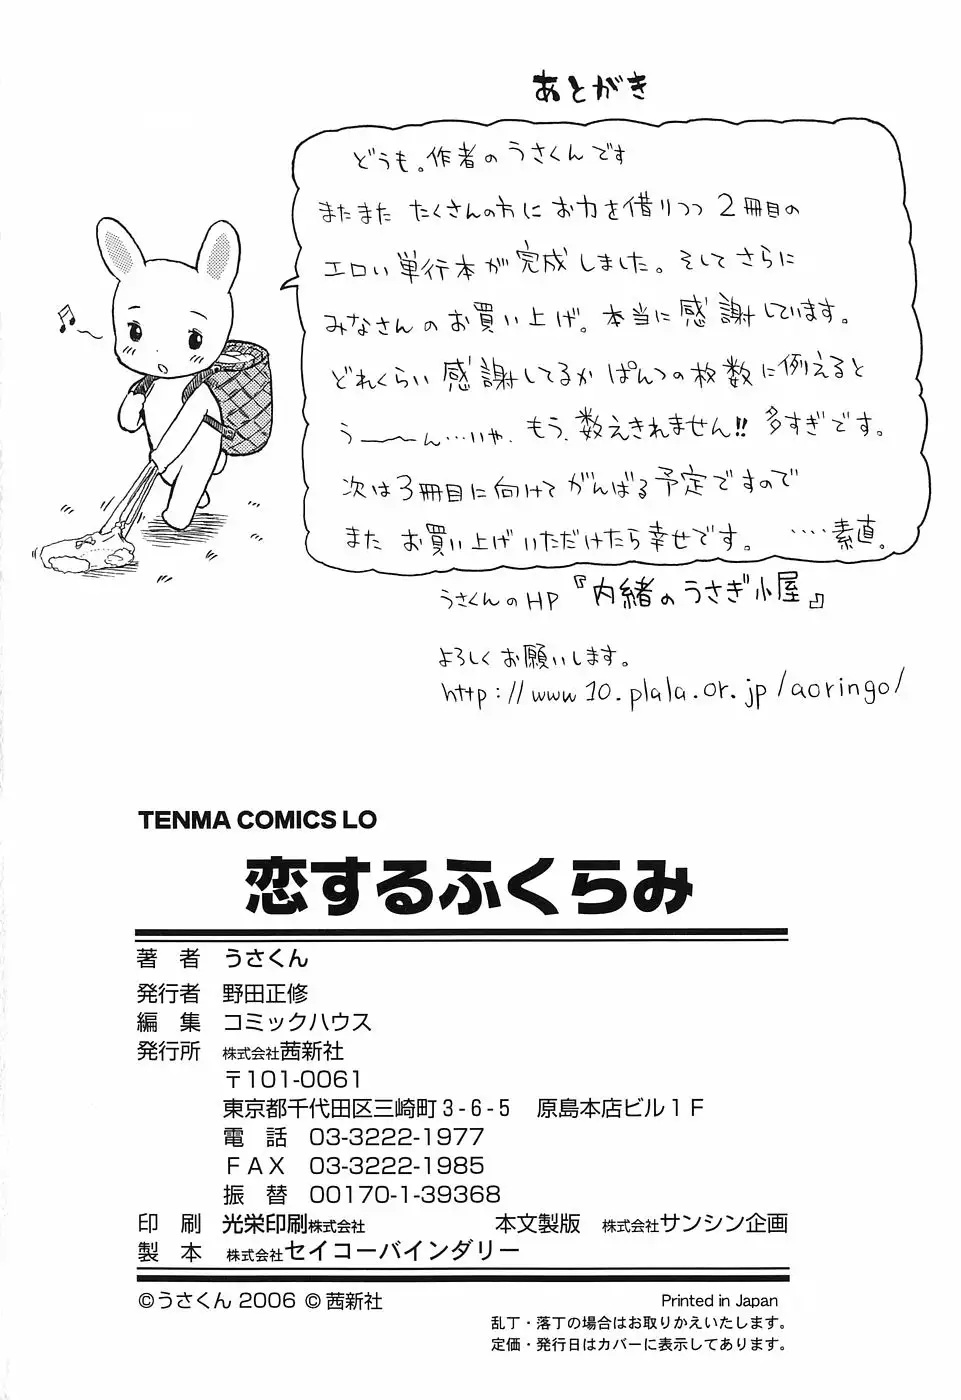 あとがき
どうも。作者のうさくんです
またまた たくさんの方に お力を借りつつ 2冊目の
エロい単行本が完成しました。そしてさらに
みなさんのお買い上げ。本当に感謝しています。
どれくらい感謝してるか ぱんつの枚数に例えると
う〜〜ん…いや、もう、数えきれません!! 多すぎです。
次は3冊目に向けてがんばる予定ですので
また お買い上げいただけたら幸せです。 ‥‥素直。
うさくんのHP 『内緒のうさぎ小屋』
よろしくお願いします。
http://www10.plala.or.jp/aoringo/
TENMA COMICS LO
恋するふくらみ
著 者 うさくん
発行者 野田正修
編 集 コミックハウス
発行所 株式会社茜新社
〒101-0061
東京都千代田区三崎町3-6-5 原島本店ビル1F
電 話 03-3222-1977
FAX 03-3222-1985
振 替 00170-1-39368
印 刷 光栄印刷株式会社 本文製版 株式会社サンシン企画
製 本 株式会社セイコーバインダリー
©うさくん 2006 © 茜新社 Printed in Japan
乱丁・落丁の場合はお取りかえいたします。
定価・発行日はカバーに表示してあります。